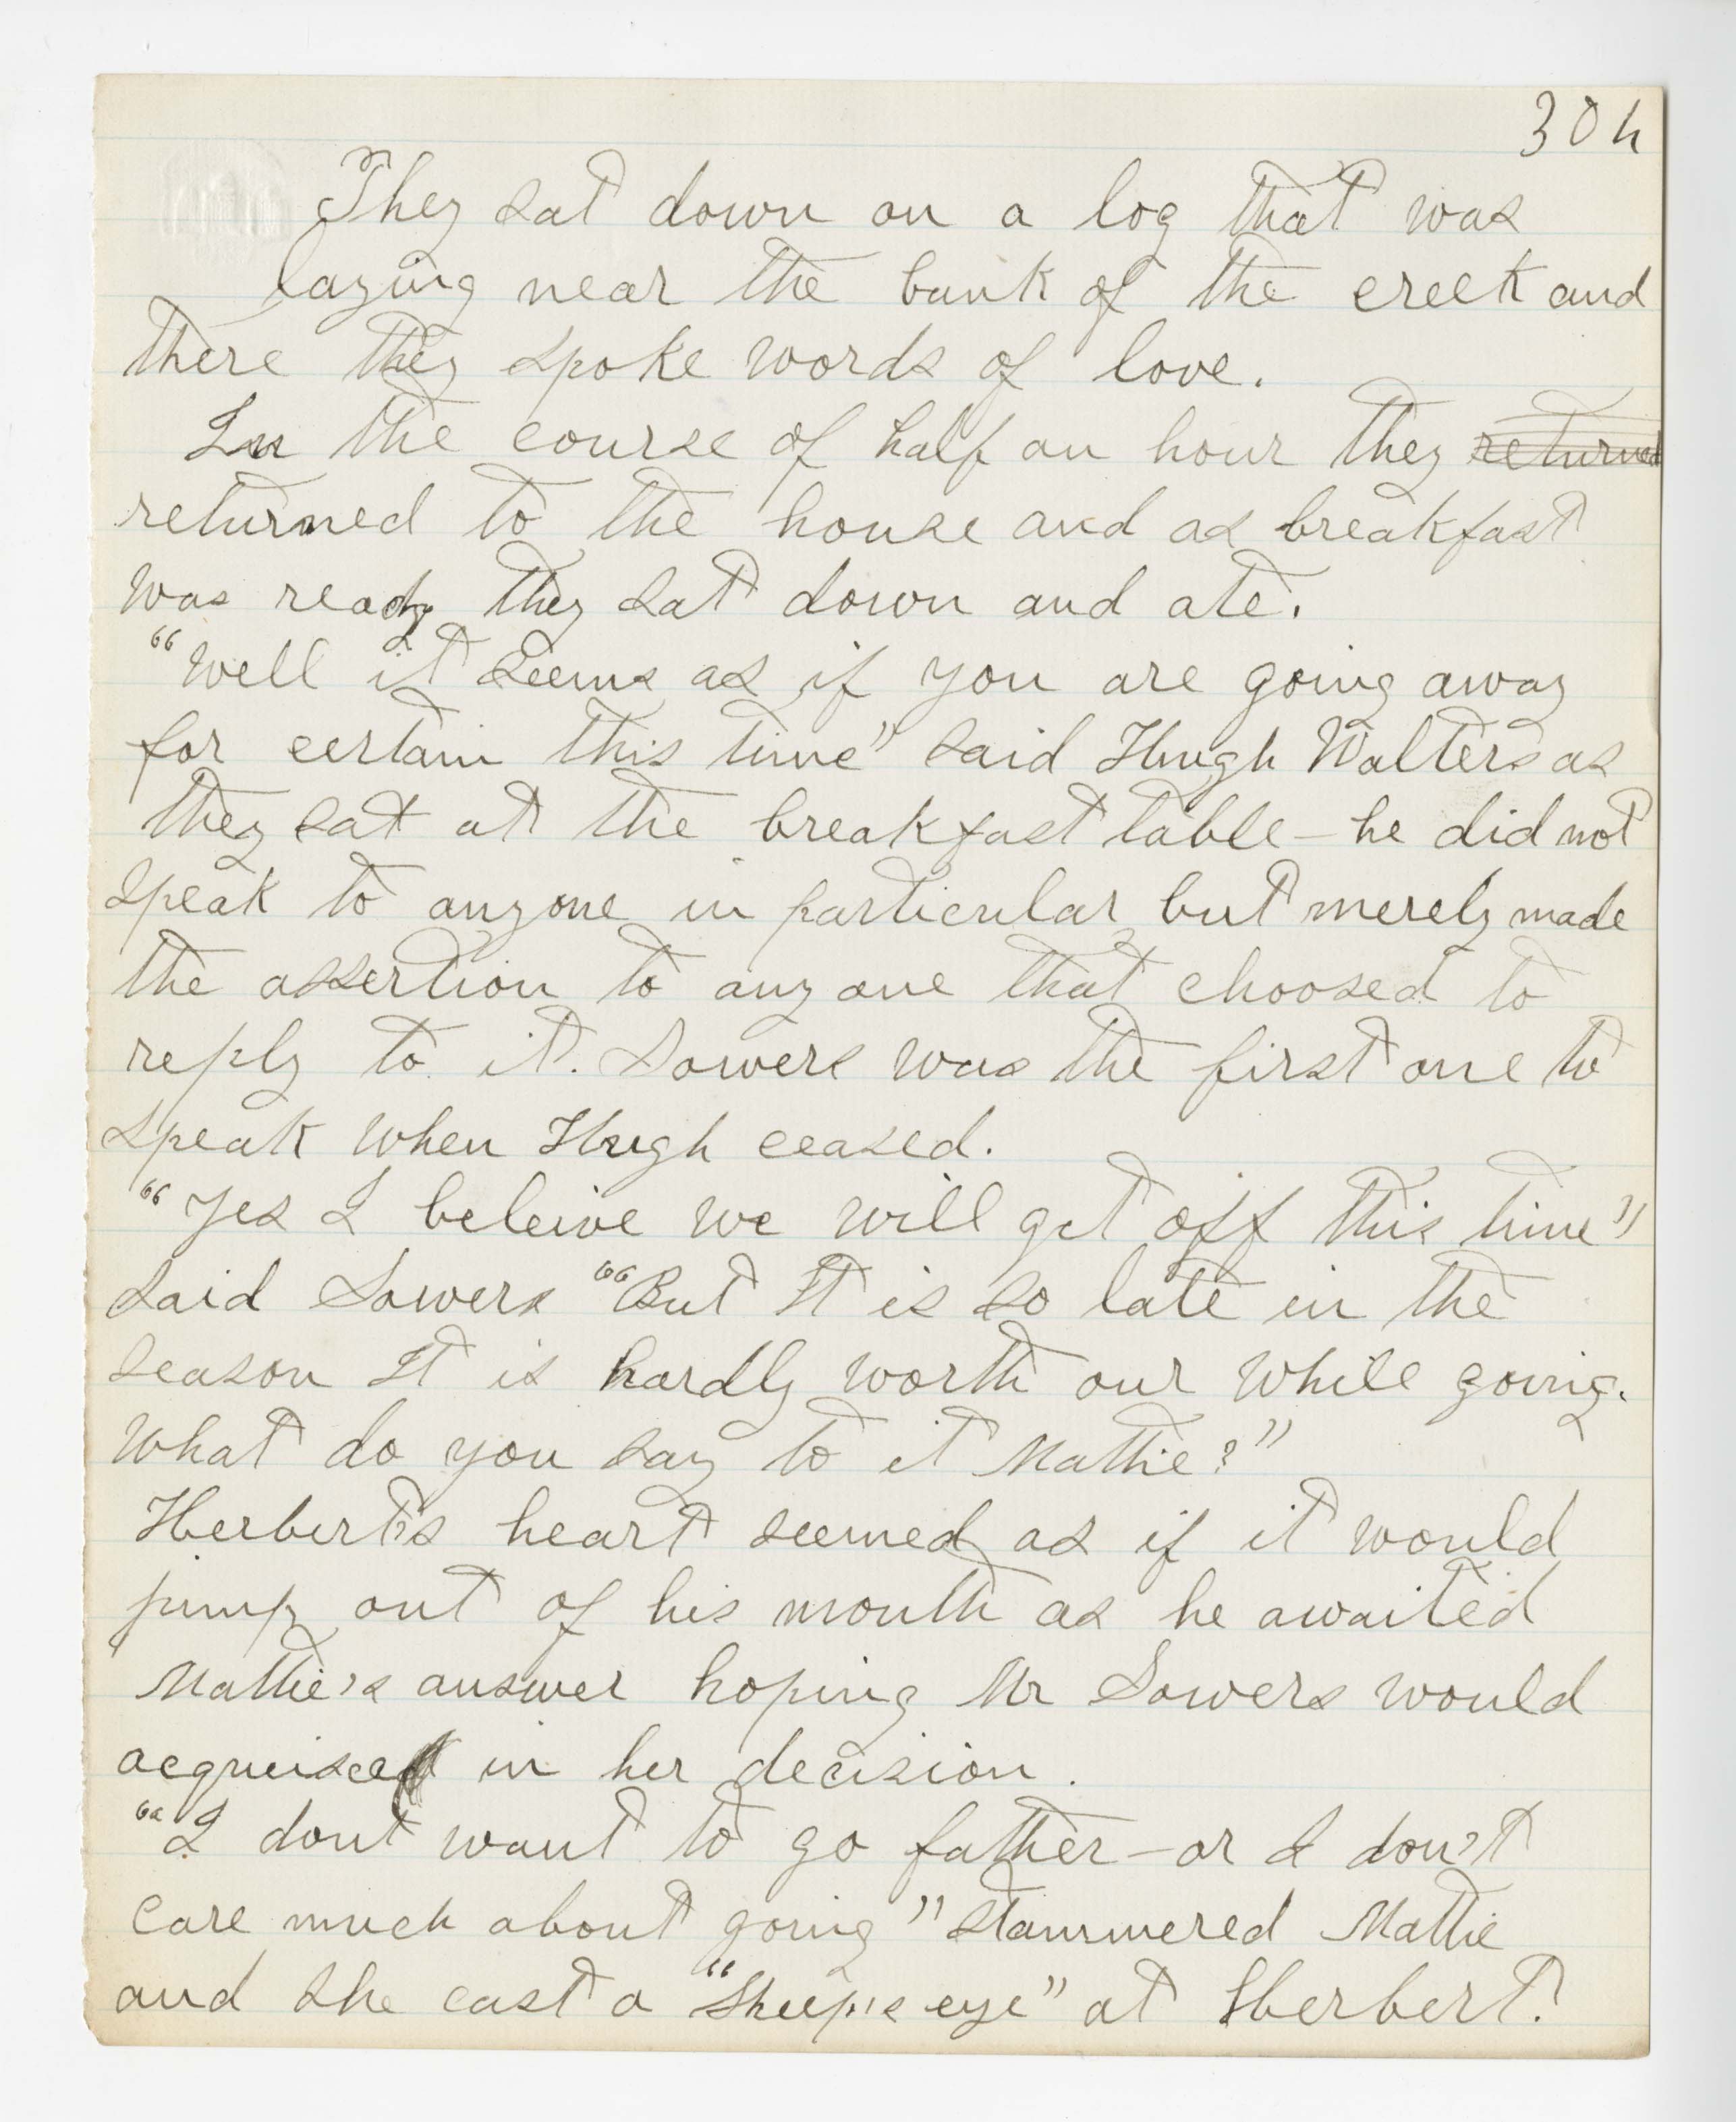 304
They sat down on a log that was
laying near the bank of the creek and
there they spoke words of love.
In the course of half an hour they returned
returned to the house and as breakfast
was ready they sat down and ate.
"Well it seems as if you are going away
for certain this time" said Hugh Walters as
they sat at the breakfast table - he did not
speak to anyone in particular but merely made
the assertion to any one that choosed to
reply to it. Sowers was the first one to
speak when Hugh ceased.
"Yes I beleive we will get off this time"
said Sowers "But It is so late in the
season It is hardly worth our while going.
What do you say to it Mattie?"
Herbert's heart seemed as if it would
jump out of his mouth as he awaited
Mattie's answer hoping Mr Sowers would
acquiesce in her decision.
"I dont want to go father - or I don't
care much about going" stammered Mattie
and she cast a "Sheep's eye" at Herbert.